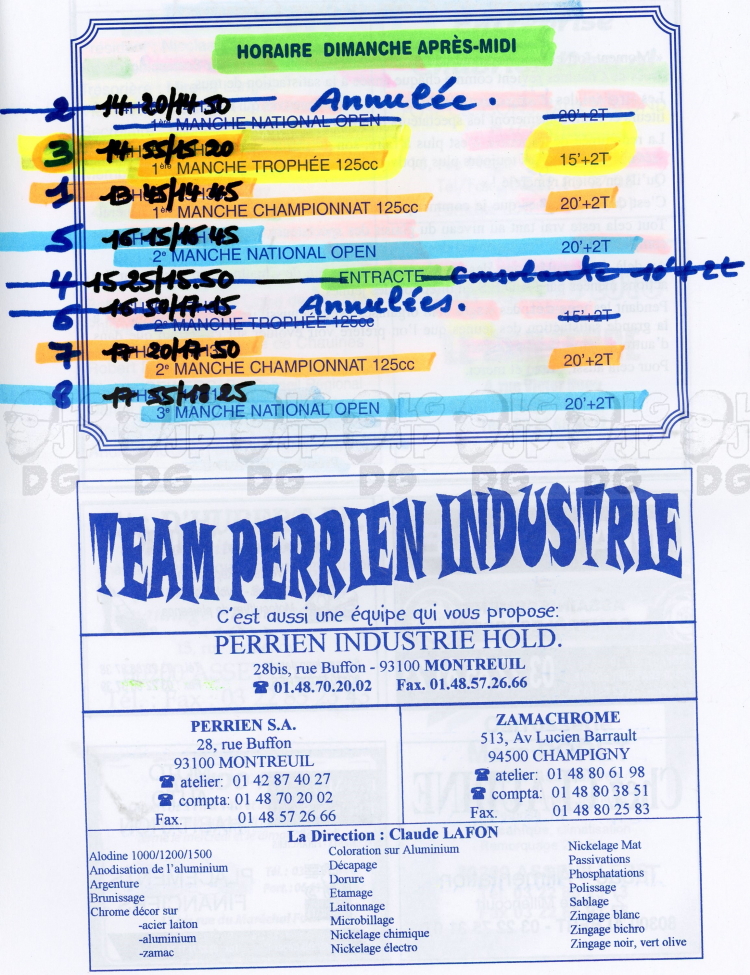 HORAIRE DIMANCHE APRÈS-MIDI
2 14.20/14.50 Annulée.
1ère MANCHE NATIONAL OPEN 20'+2T
3 14 55/15 20
1ère MANCHE TROPHÉE 125cc 15'+2T
1 13 45/14 15
1ère MANCHE CHAMPIONNAT 125cc 20'+2T
5 16 15/16 45
2e MANCHE NATIONAL OPEN 20'+2T
4 15.25/15.50 ENTRACTE Consolante 10'+2t
6 16 50/17 15 Annulées.
2e MANCHE TROPHÉE 125cc 15'+2T
7 17 20/17 50
2e MANCHE CHAMPIONNAT 125cc 20'+2T
8 17 55/18 25
3e MANCHE NATIONAL OPEN 20'+2T
LG JP DG
TEAM PERRIEN INDUSTRIE
C'est aussi une équipe qui vous propose:
PERRIEN INDUSTRIE HOLD.
28bis, rue Buffon - 93100 MONTREUIL
☎ 01.48.70.20.02 Fax. 01.48.57.26.66
PERRIEN S.A.
28, rue Buffon
93100 MONTREUIL
☎ atelier: 01 42 87 40 27
☎ compta: 01 48 70 20 02
Fax. 01 48 57 26 66
ZAMACHROME
513, Av Lucien Barrault
94500 CHAMPIGNY
☎ atelier: 01 48 80 61 98
☎ compta: 01 48 80 38 51
Fax. 01 48 80 25 83
La Direction : Claude LAFON
Alodine 1000/1200/1500
Anodisation de l'aluminium
Argenture
Brunissage
Chrome décor sur
-acier laiton
-aluminium
-zamac
Coloration sur Aluminium
Décapage
Dorure
Etamage
Laitonnage
Microbillage
Nickelage chimique
Nickelage électro
Nickelage Mat
Passivations
Phosphatations
Polissage
Sablage
Zingage blanc
Zingage bichro
Zingage noir, vert olive